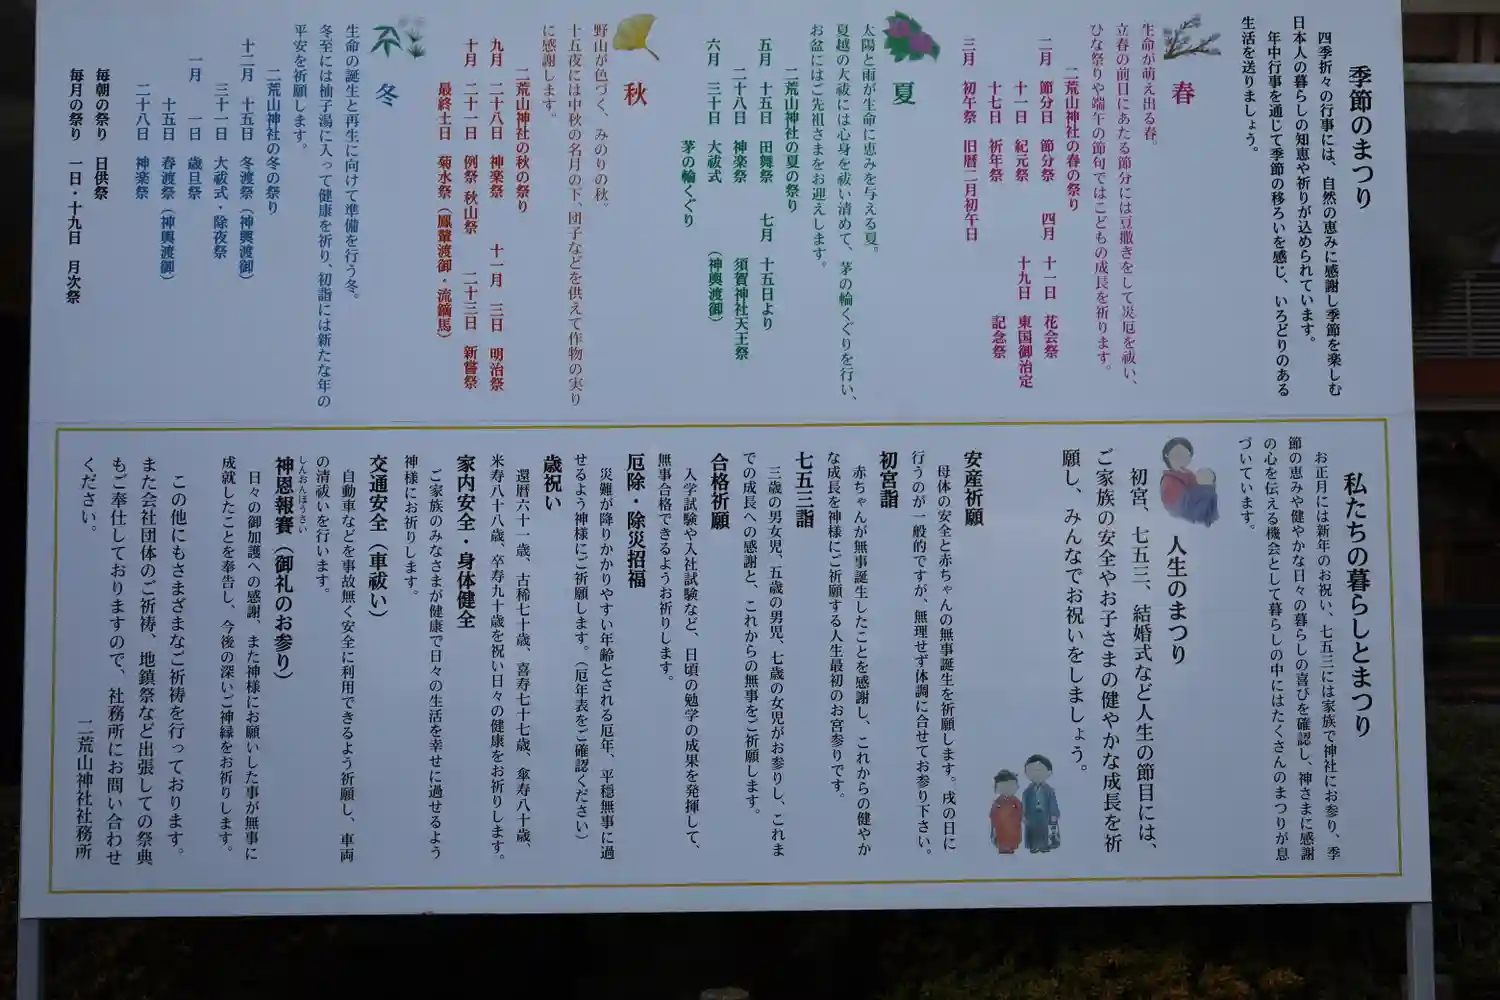 季節のまつり
四季折々の行事には、自然の恵みに感謝し季節を楽しむ
日本人の暮らしの知恵や祈りが込められています。
年中行事を通じて季節の移ろいを感じ、いろどりのある
生活を送りましょう。
春
生命が萌え出る春。
立春の前日にあたる節分には豆撒きをして災厄を祓い、
ひな祭りや端午の節句ではこどもの成長を祈ります。
二荒山神社の春の祭り
二月 節分日 節分祭 四月 十一日 花会祭
十一日 紀元祭 十九日 東国御治定
十七日 祈年祭 記念祭
三月 初午祭 旧暦二月初午日
夏
太陽と雨が生命に恵みを与える夏。
夏越の大祓には心身を祓い清めて、茅の輪くぐりを行い、
お盆にはご先祖さまをお迎えします。
二荒山神社の夏の祭り
五月 十五日 田舞祭 七月 十五日より
二十八日 神楽祭 須賀神社天王祭
六月 三十日 大祓式 (神輿渡御)
茅の輪くぐり
秋
野山が色づく、みのりの秋。
十五夜には中秋の名月の下、団子などを供えて作物の実り
に感謝します。
二荒山神社の秋の祭り
九月 二十八日 神楽祭 十一月 三日 明治祭
十月 二十一日 例祭 秋山祭 二十三日 新嘗祭
最終土日 菊水祭(鳳輦渡御・流鏑馬)
冬
生命の誕生と再生に向けて準備を行う冬。
冬至には柚子湯に入って健康を祈り、初詣には新たな年の
平安を祈願します。
二荒山神社の冬の祭り
十二月 十五日 冬渡祭(神輿渡御)
三十一日 大祓式・除夜祭
一月 一日 歳旦祭
十五日 春渡祭(神輿渡御)
二十八日 神楽祭
毎朝の祭り 日供祭
毎月の祭り 一日・十九日 月次祭
私たちの暮らしとまつり
お正月には新年のお祝い、七五三には家族で神社にお参り、季
節の恵みや健やかな日々の暮らしの喜びを確認し、神さまに感謝
の心を伝える機会として暮らしの中にはたくさんのまつりが息
づいています。
人生のまつり
初宮、七五三、結婚式など人生の節目には、
ご家族の安全やお子さまの健やかな成長を祈
願し、みんなでお祝いをしましょう。
安産祈願
母体の安全と赤ちゃんの無事誕生を祈願します。戌の日に
行うのが一般的ですが、無理せず体調に合せてお参り下さい。
初宮詣
赤ちゃんが無事誕生したことを感謝し、これからの健やか
な成長を神様にご祈願する人生最初のお宮参りです。
七五三詣
三歳の男女児、五歳の男児、七歳の女児がお参りし、これま
での成長への感謝と、これからの無事をご祈願します。
合格祈願
入学試験や入社試験など、日頃の勉学の成果を発揮して、
無事合格できるようお祈りします。
厄除・除災招福
災難が降りかかりやすい年齢とされる厄年、平穏無事に過
せるよう神様にご祈願します。(厄年表をご確認ください)
歳祝い
還暦六十一歳、古稀七十歳、喜寿七十七歳、傘寿八十歳、
米寿八十八歳、卒寿九十歳を祝い日々の健康をお祈りします。
家内安全・身体健全
ご家族のみなさまが健康で日々の生活を幸せに過せるよう
神様にお祈りします。
交通安全(車祓い)
自動車などを事故無く安全に利用できるよう祈願し、車両
の清祓いを行います。
しんおんほうさい
神恩報賽(御礼のお参り)
日々の御加護への感謝、また神様にお願いした事が無事に
成就したことを奉告し、今後の深いご神縁をお祈りします。
この他にもさまざまなご祈祷を行っております。
また会社団体のご祈祷、地鎮祭など出張しての祭典
もご奉仕しておりますので、社務所にお問い合わせ
ください。
二荒山神社社務所